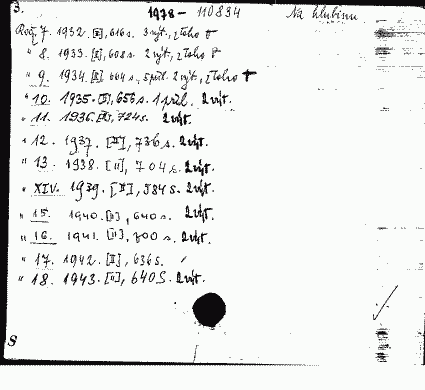 3. 1978 - 110834 Na hlubinu
Roč. 7. 1932. [II], 616 s. 3 výt., z toho
" 8. 1933. [II], 608 s. 2 výt., z toho
" 9. 1934. [II] 604 s., 5 příl. 2 výt., z toho
" 10. 1935. [II], 656 s. 1 příl. 2 výt.
" 11. 1936. [II], 724 s. 2 výt.
" 12. 1937. [II], 736 s. 2 výt.
" 13. 1938. [II], 704 s. 2 výt.
" XIV. 1939. [II], 584 s. 2 výt.
" 15. 1940. [II], 640 s. 2 výt.
" 16. 1941. [II], 700 s. 2 výt.
" 17. 1942. [II], 636 s.
" 18. 1943. [II], 640 S. 2 výt.
S